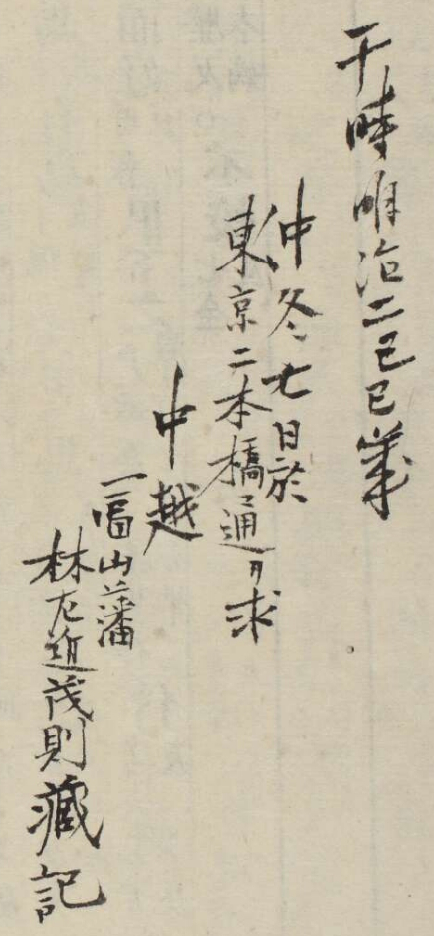 于時明治二己巳歳
仲冬七日於
東京二本橋通求
中越
富山藩
林左近茂則藏記